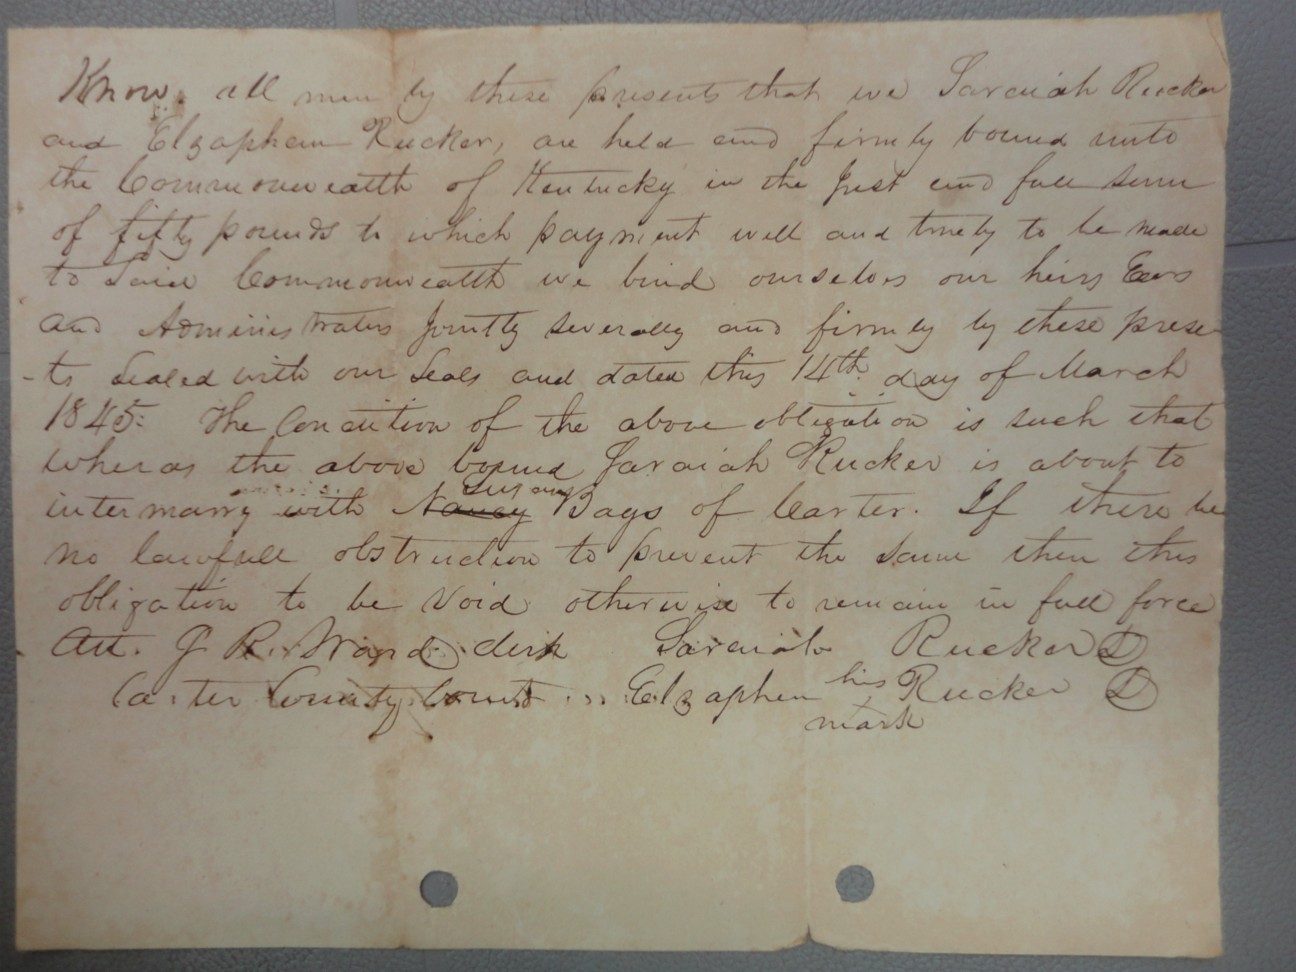 Know all men by these presents that we Saraiah Rucker
and Elzaphan Rucker, are held and firmly bound unto
the Commonwealth of Kentucky in the Just and full sum
of fifty pounds to which payment well and truely to be made
to Said Commonwealth we bind ourselves our heirs Exrs
and Administrators Jointly severally and firmly by these prese
-ts Sealed with our Seals and dated this 14th day of March
1845: The Condition of the above obligation is such that
wheras the above bound Saraiah Rucker is about to
Susany
intermarry with Nancy Bays of Carter. If there be
no lawfull obstruction to prevent the same then this
obligation to be Void otherwise to remain in full force
Att. G R. Ward clerk Saraiah Rucker
Carter County Court Elzaphen his Rucker
mark